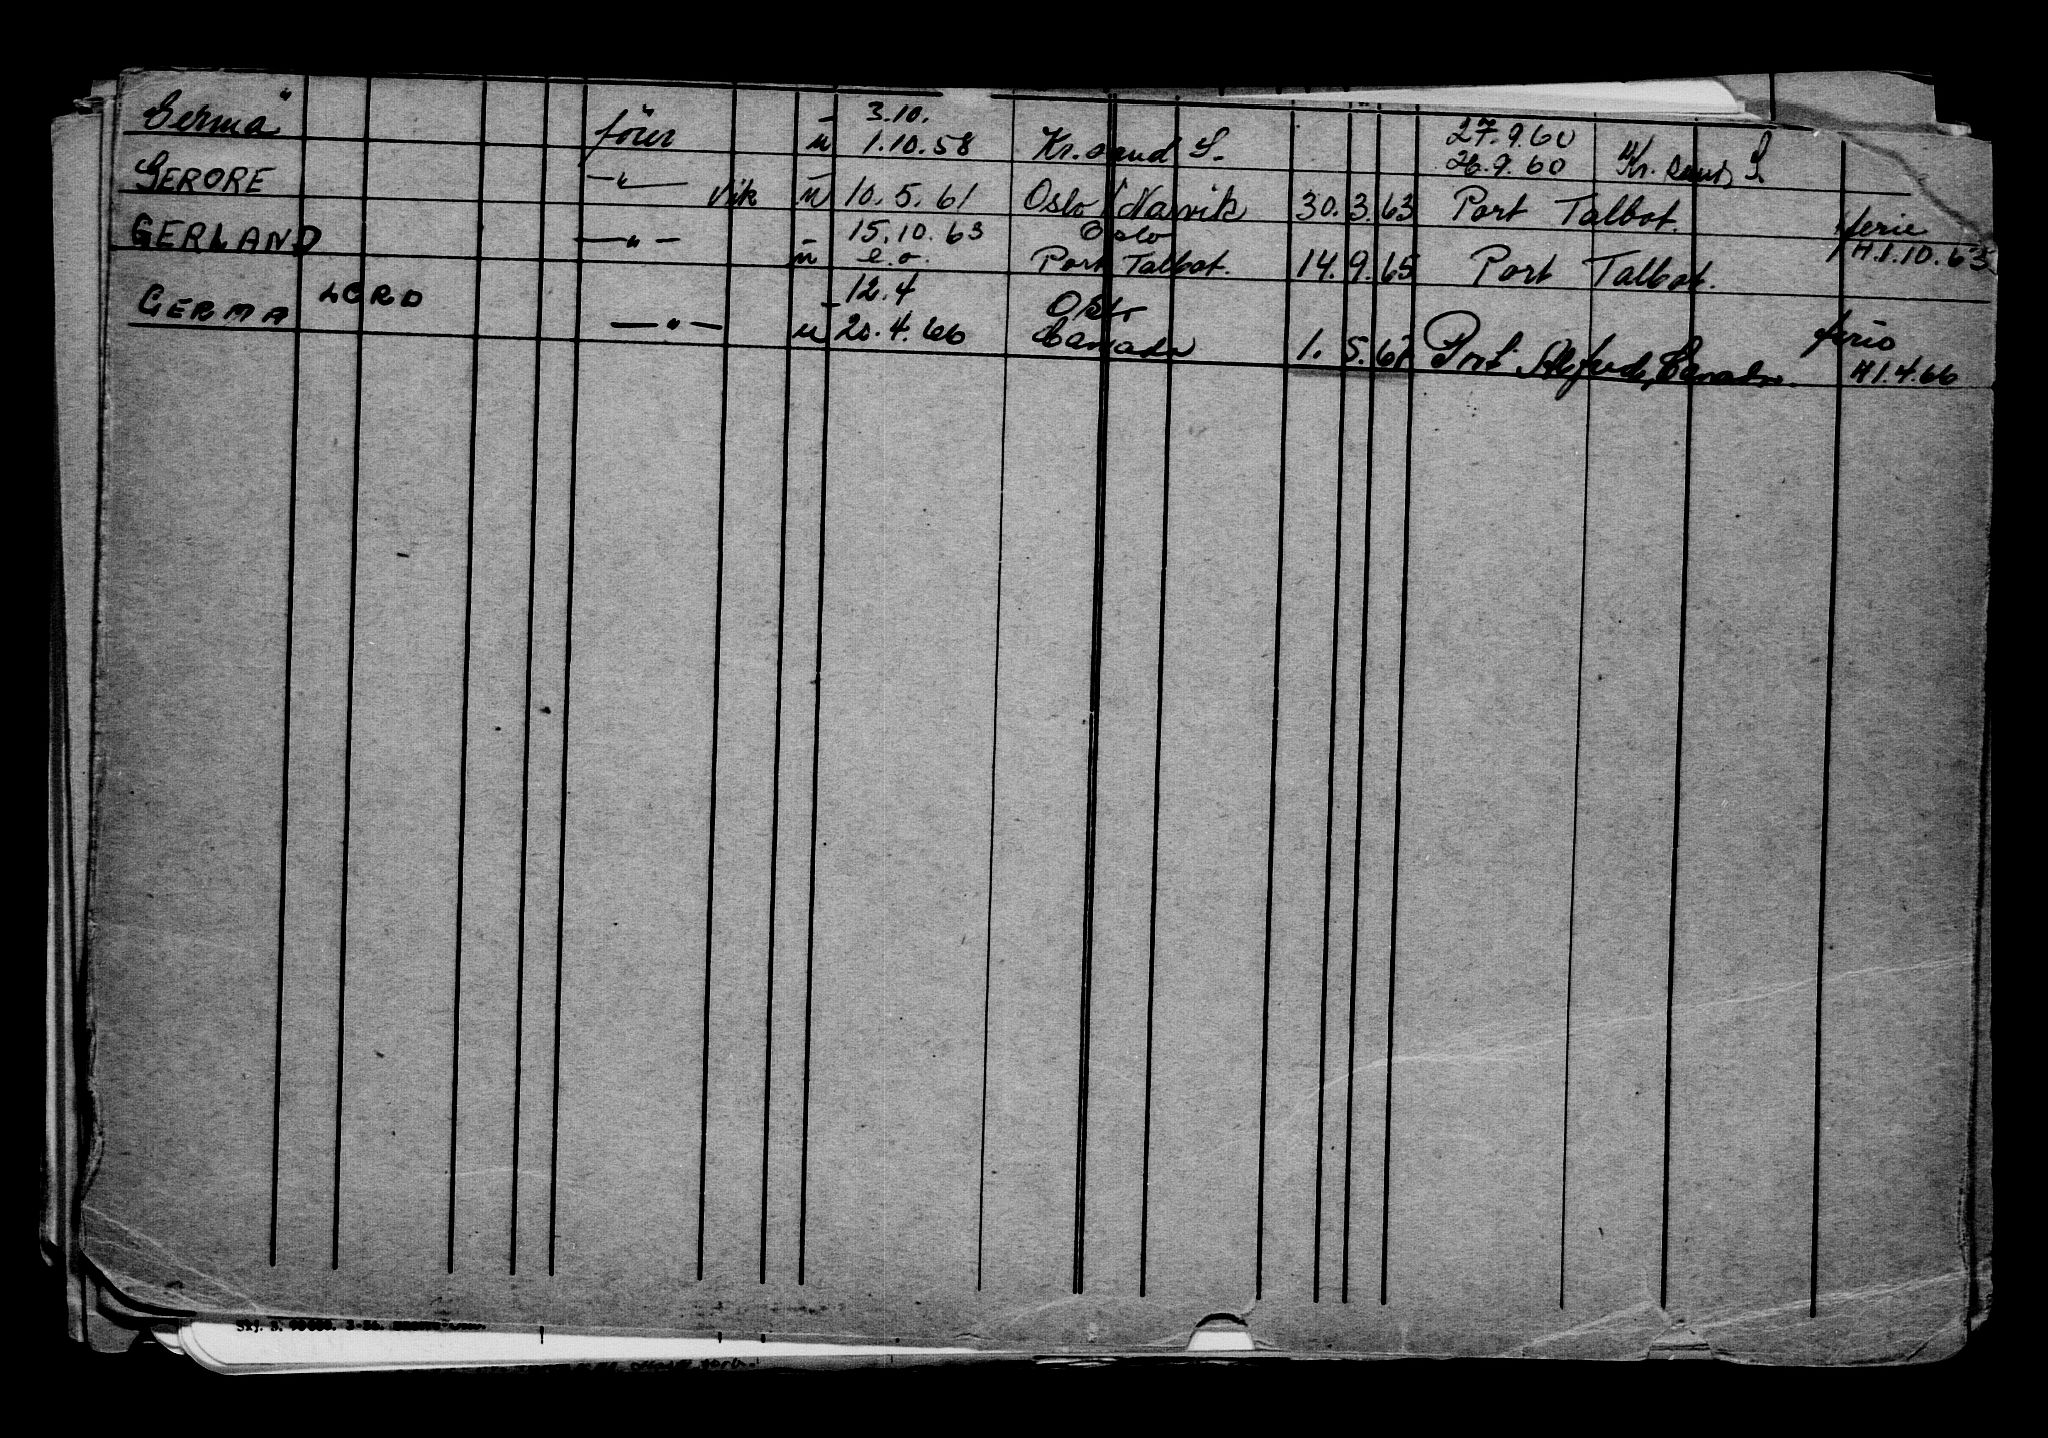 "Germa" förer - 3.10. 27.9.60
u 1.10.58 Kr.sand S. 26.9.60 Kr. sand S.
GERORE -"- Vik u 10.5.61 Oslo/Narvik 30.3.63 Port Talbot. ferie
GERLAND -"- - 15.10.63 Oslo H.1.10.63
u e.o. Port Talbot. 14.9.65 Port Talbot.
GERMA LORD -"- - 12.4 Oslo ferie
u 20.4.66 Canada 1.5.67 Port Alfred, Canada. H1.4.66